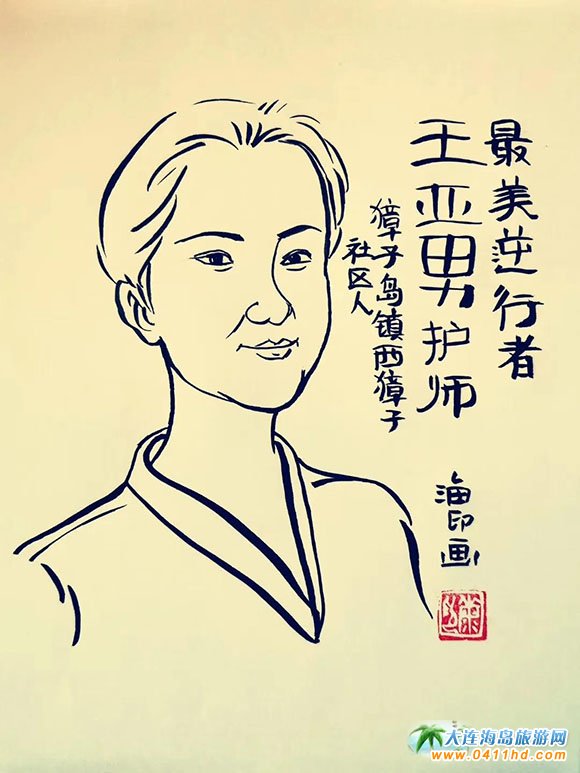 最美逆行者
王亚男护师
獐子岛镇西獐子
社区人
海印画
大连海岛旅游网
www.0411hd.com